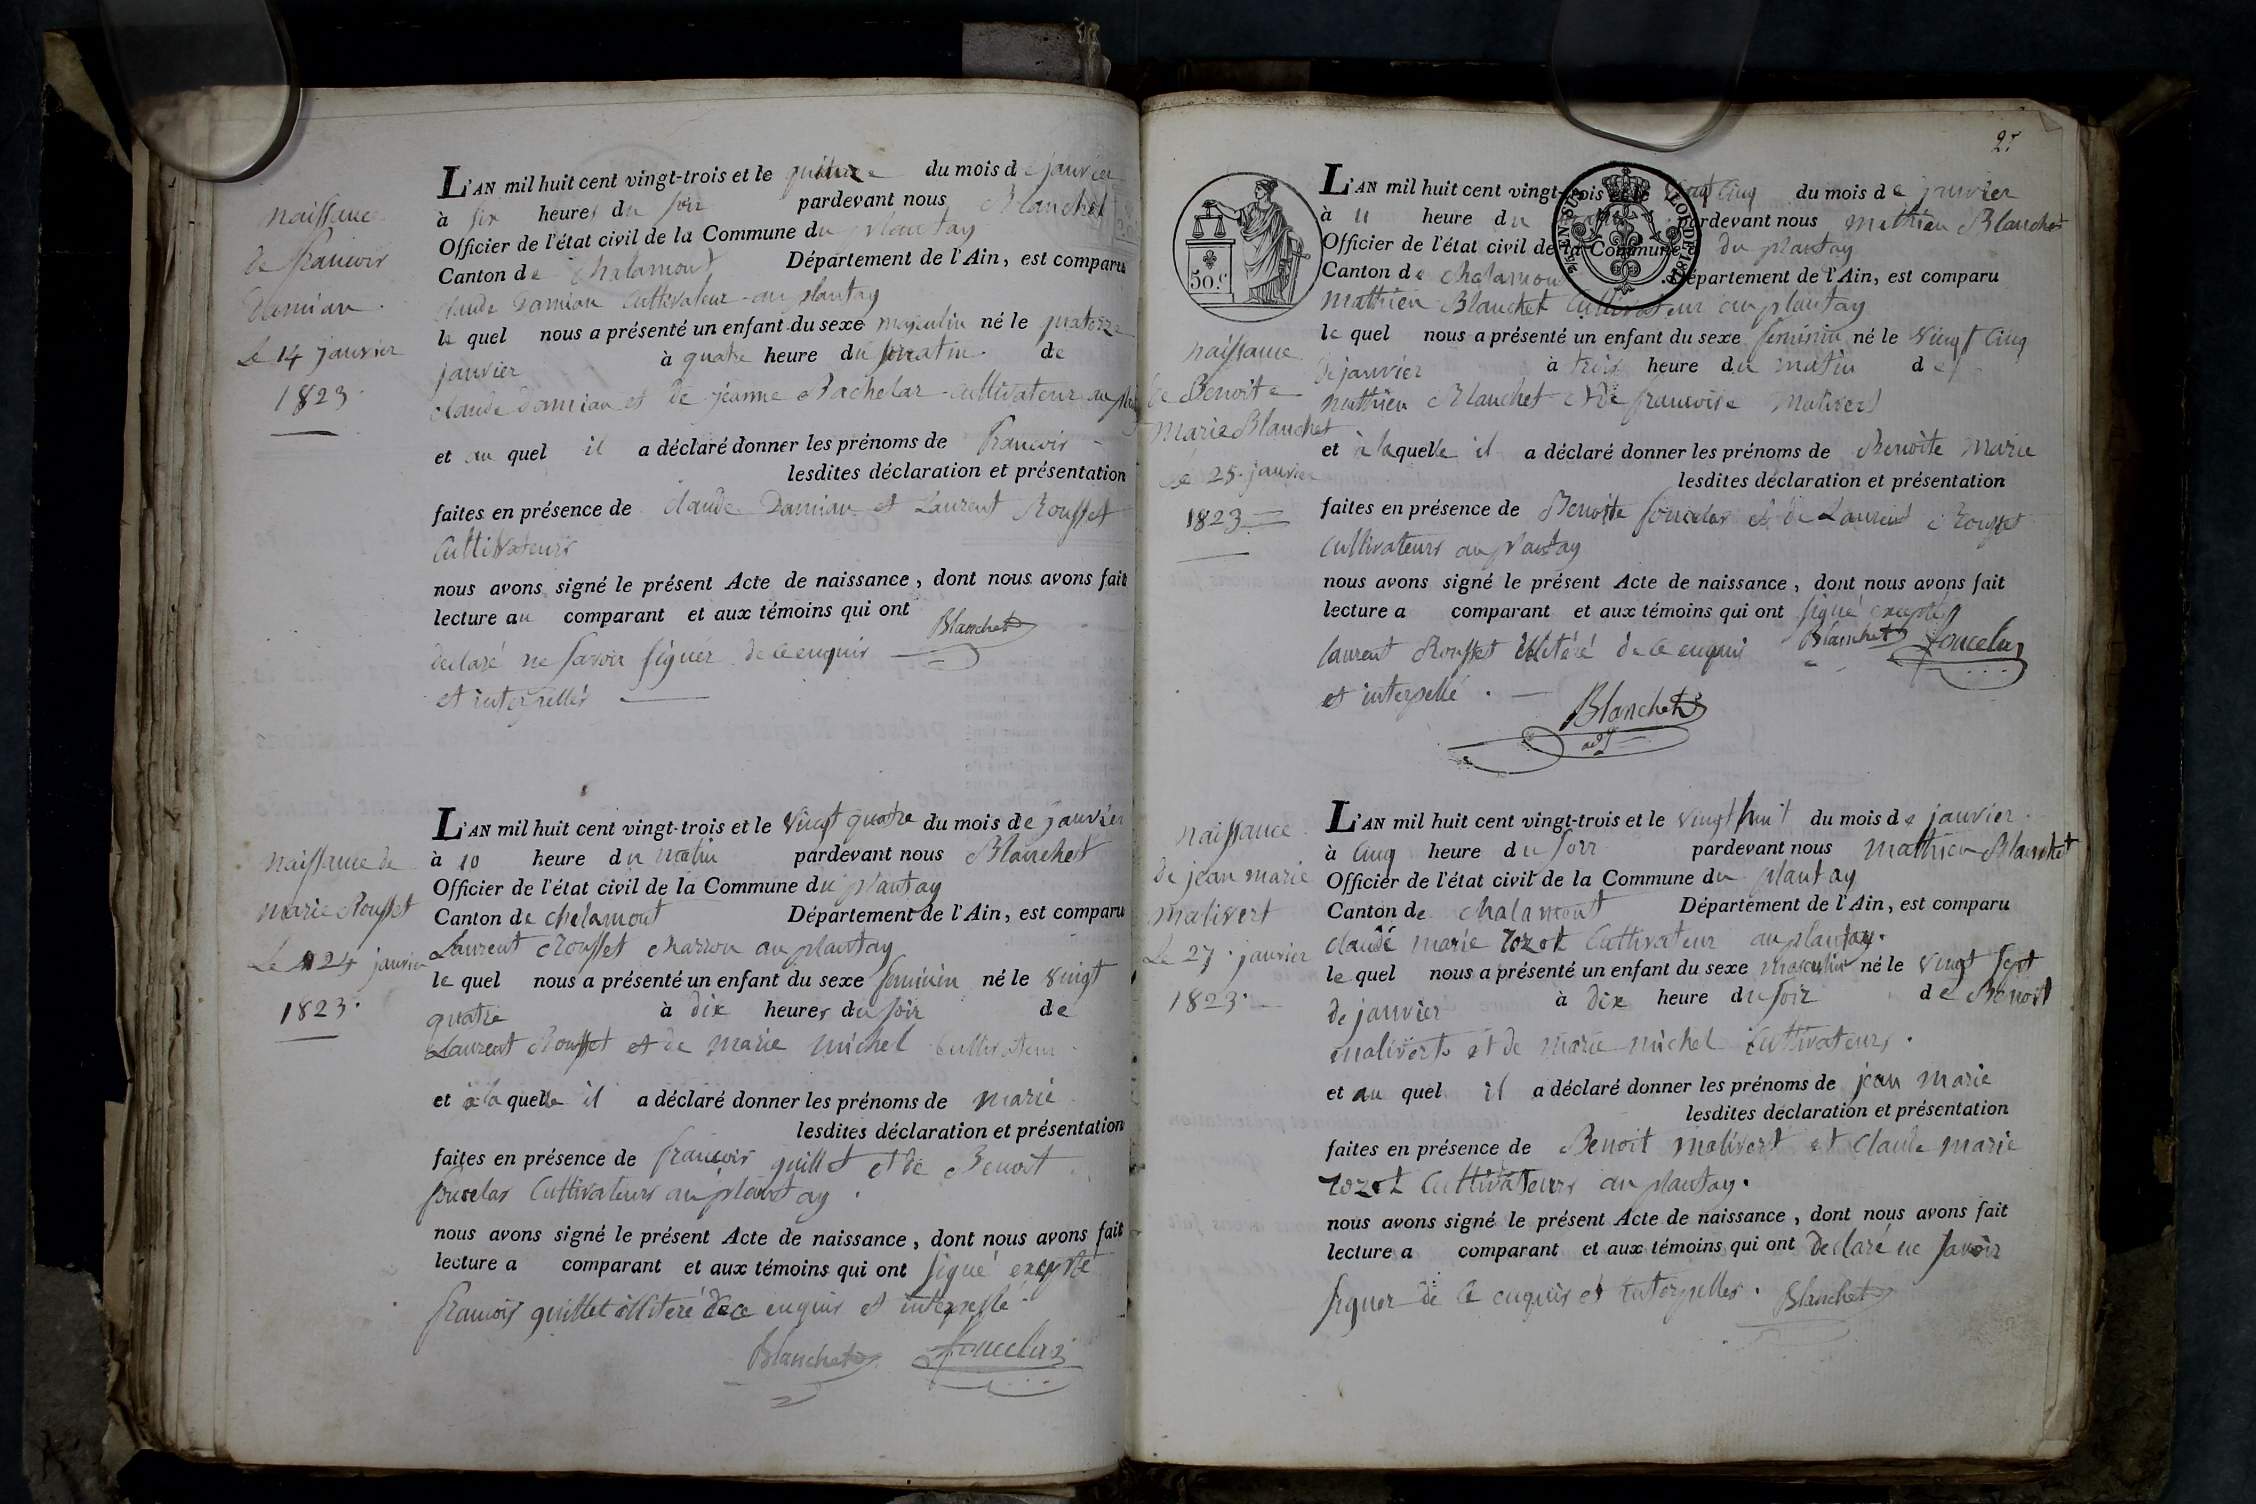 naissance
de francois
Damian
Le 14 janvier
1823.
L'AN mil huit cent vingt-trois et le quinze du mois de janvier
à six heures du soir pardevant nous Blanchet
Officier de l'état civil de la Commune du plantay
Canton de chalamont Département de l'Ain, est comparu
claude Damian Cultivateur au plantay
le quel nous a présenté un enfant du sexe masculin né le quatorze
janvier à quatre heure du matin de
claude damian et de jeanne Bachelar Cultivateur au
et au quel il a déclaré donner les prénoms de francois
lesdites déclaration et présentation
faites en présence de claude Damian et Laurent Rousset
Cultivateurs
nous avons signé le présent Acte de naissance, dont nous avons fait
lecture au comparant et aux témoins qui ont
declaré ne savoir signer de ce enquis Blanchet
et interpellés
naissance de
marie Rousset
Le 24 janvier
1823.
L'AN mil huit cent vingt-trois et le vingt quatre du mois de janvier
à 10 heure du matin pardevant nous Blanchet
Officier de l'état civil de la Commune du plantay
Canton de chelamont Département de l'Ain, est comparu
Laurent Rousset charron au plantay
le quel nous a présenté un enfant du sexe feminin né le vingt
quatre à dix heures du soir de
Laurent Rousset et de marie michel Cultivateur
et à la quelle il a déclaré donner les prénoms de marie
lesdites déclaration et présentation
faites en présence de francois quillet et de Benoit
foucelas Cultivateurs au plantay.
nous avons signé le présent Acte de naissance, dont nous avons fait
lecture a comparant et aux témoins qui ont signé excepté
francois quillet illiteré de ce enquis et interpellé
Blanchet foucelas
50.c
naissance
de Benoite
Marie Blanchet
le 25. janvier
1823
L'AN mil huit cent vingt-trois et le vingt cinq du mois de janvier
à 11 heure du pardevant nous mathieu Blanchet
Officier de l'état civil de la Commune du plantay
Canton de chalamont Département de l'Ain, est comparu
mathieu Blanchet Cultivateur au plantay
le quel nous a présenté un enfant du sexe feminin né le vingt cinq
de janvier à trois heure du matin de
mathieu Blanchet et de francoise malivert
et à laquelle il a déclaré donner les prénoms de Benoite Marie
lesdites déclaration et présentation
faites en présence de Benoite foucelas et de Laurent Rousset
Cultivateurs au plantay
nous avons signé le présent Acte de naissance, dont nous avons fait
lecture a comparant et aux témoins qui ont signé excepté
laurent Rousset illitéré de ce enquis Blanchet foucelas
et interpellé.
Blanchet
adj
naissance
de jean marie
malivert
Le 27. janvier
1823.
L'AN mil huit cent vingt-trois et le vingt huit du mois de janvier.
à cinq heure du soir pardevant nous mathieu Blanchet
Officier de l'état civil de la Commune du plantay
Canton de chalamont Département de l'Ain, est comparu
claude marie rozet Cultivateur au plantay.
le quel nous a présenté un enfant du sexe masculin né le vingt sept
de janvier à dix heure du soir de Benoit
malivert et de marie michel Cultivateurs.
et au quel il a déclaré donner les prénoms de jean marie
lesdites déclaration et présentation
faites en présence de Benoit malivert et claude marie
rozet Cultivateurs au plantay.
nous avons signé le présent Acte de naissance, dont nous avons fait
lecture a comparant et aux témoins qui ont declaré ne savoir
signer de ce enquis et interpellés. Blanchet